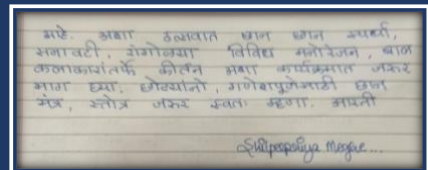 आहे. अशा उत्सवात छान छान स्पर्धा,
सजावटी, रांगोळ्या विविध मनोरंजन, बाल
कलाकारांतर्फे कीर्तन अशा कार्यक्रमात जरूर
भाग घ्या. छोट्यांनो, गणेशपूजेसाठी छान
मंत्र, स्तोत्र जरूर स्वतः म्हणा. आरती
Shilpapriya